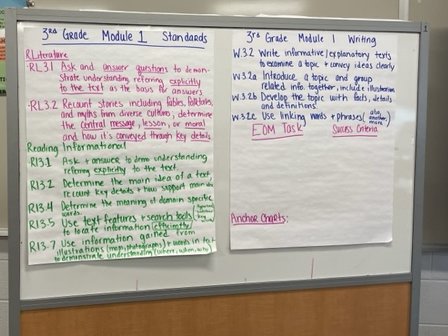 3RD Grade Module 1 Standards
RLiterature
RL3.1 Ask and answer questions to demon-
strate understanding, referring explicitly
to the text as the basis for answers
RL3.2 Recount stories including fables, folktales,
and myths from diverse cultures; determine
the central message, lesson, or moral
and how it's conveyed through key details
Reading Informational
RI3.1 Ask + answer to demo understanding
referring explicitly to the text.
RI3.2 Determine the main idea of a text,
recount key details + how support main idea
RI3.4 Determine the meaning of domain specific
words.
RI3.5 Use text features + search tools
to locate information efficiently
RI3.7 Use information gained from
illustrations (maps, photographs) + words in text
to demonstrate understanding (where, when, why)
3rd Grade Module 1 Writing
W.3.2 Write informative/explanatory texts
to examine a topic + convey ideas clearly
W.3.2a Introduce a topic and group
related info. together, include illustration
W.3.2b Develop the topic with facts, details
and definitions
W.3.2c Use linking words + phrases (also, another, more)
EOM Task Success Criteria
Anchor Charts: